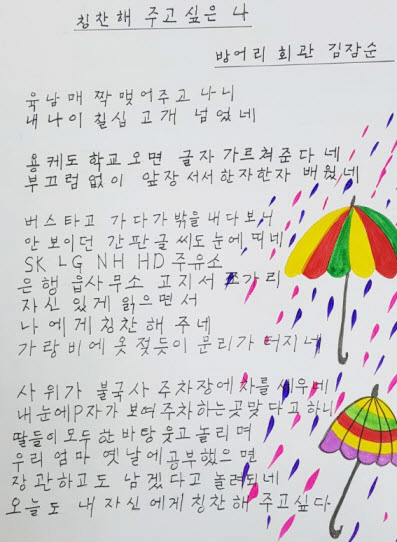 칭찬해 주고싶은 나
방어리 회관 김잠순
육남매 짝맺어주고 나니
내나이 칠십 고개 넘었네
용케도 학교오면 글자 가르쳐준다네
부끄럼없이 앞장서서 한자한자 배웠네
버스타고 가다가 밖을 내다보니
안보이던 간판글씨도 눈에 띠네
SK LG NH HD 주유소
은행 읍사무소 고지서 쪼가리
자신 있게 읽으면서
나에게 칭찬해 주네
가랑비에 옷 젖듯이 문리가 터지네
사위가 불국사 주차장에 차를 세우네
내눈에P자가 보여 주차하는곳맞다고 하니
딸들이 모두 한바탕 웃고 놀리며
우리 엄마 옛날에 공부했으면
장관하고도 남겠다고 놀려되네
오늘도 내 자신에게 칭찬해 주고싶다